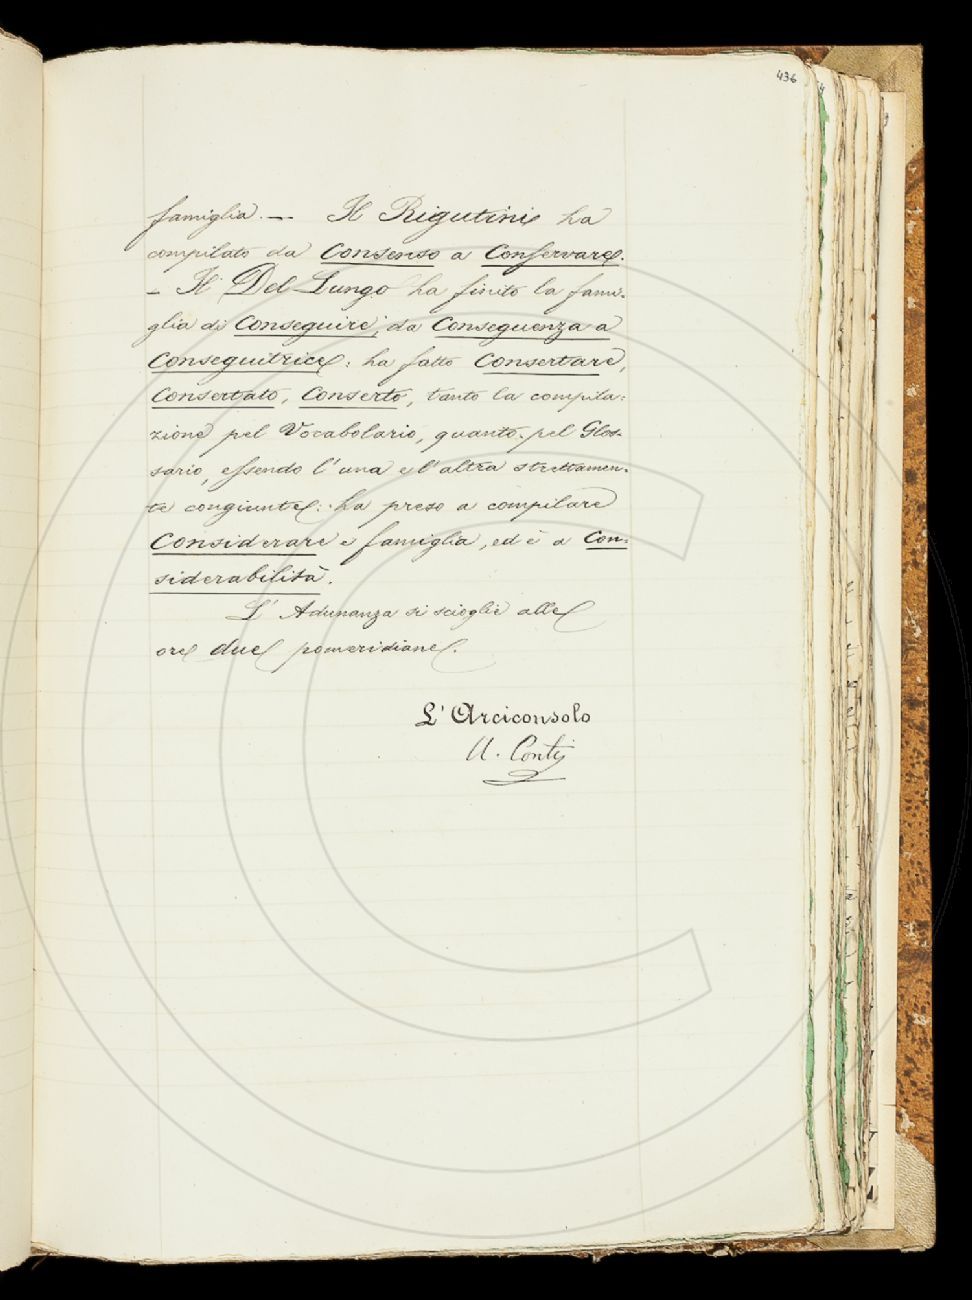 436
famiglia. — Il Rigutini ha
compilato da Consenso a Conservare.
— Il Del Lungo ha finito la fami-
glia di Conseguire, da Conseguenza a
Conseguitrice: ha fatto Consertare,
Consertato, Conserto, tanto la compila-
zione pel Vocabolario, quanto pel Glos-
sario, essendo l'una e l'altra strettamen-
te congiunte: ha preso a compilare
Considerare e famiglia, ed è a Con-
siderabilità.
L'Adunanza si scioglie alle
ore due pomeridiane.
L'Arciconsolo
A. Conti